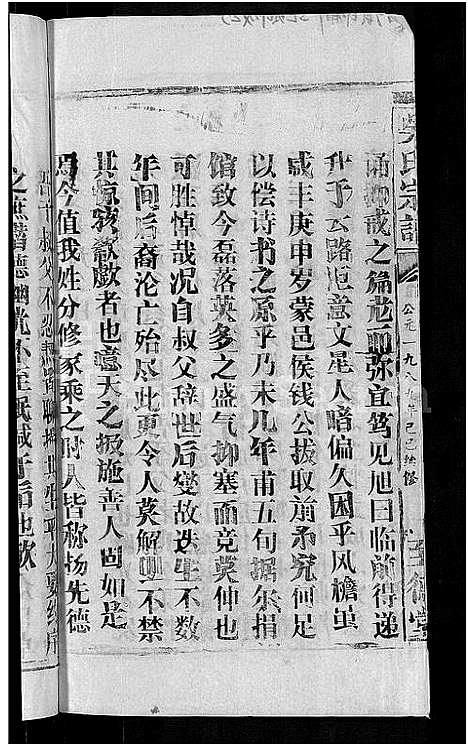 吴氏宗谱
公元一九八九年己巳续修
诵抑戒之篇尨而弥宜笃见旭日临前得递
升于云路讵意文星人暗偏久困乎风檐虽
咸丰庚申岁蒙邑侯钱公拔取前矛究何足
以偿诗书之原乎乃未几年甫五旬据尔捐
馆致令磊落英多之盛气抑塞而竞莫伸也
可胜悼哉况自叔父辞世后变故迭生不数
年间后裔沦亡殆尽此更令人莫解而不禁
其惊欷歔者也噫天之报施善人固如是
焉今值我姓分修家乘之时人皆称扬先德
叔父不忍
之庶潜德幽光不至泯灭于后也欤